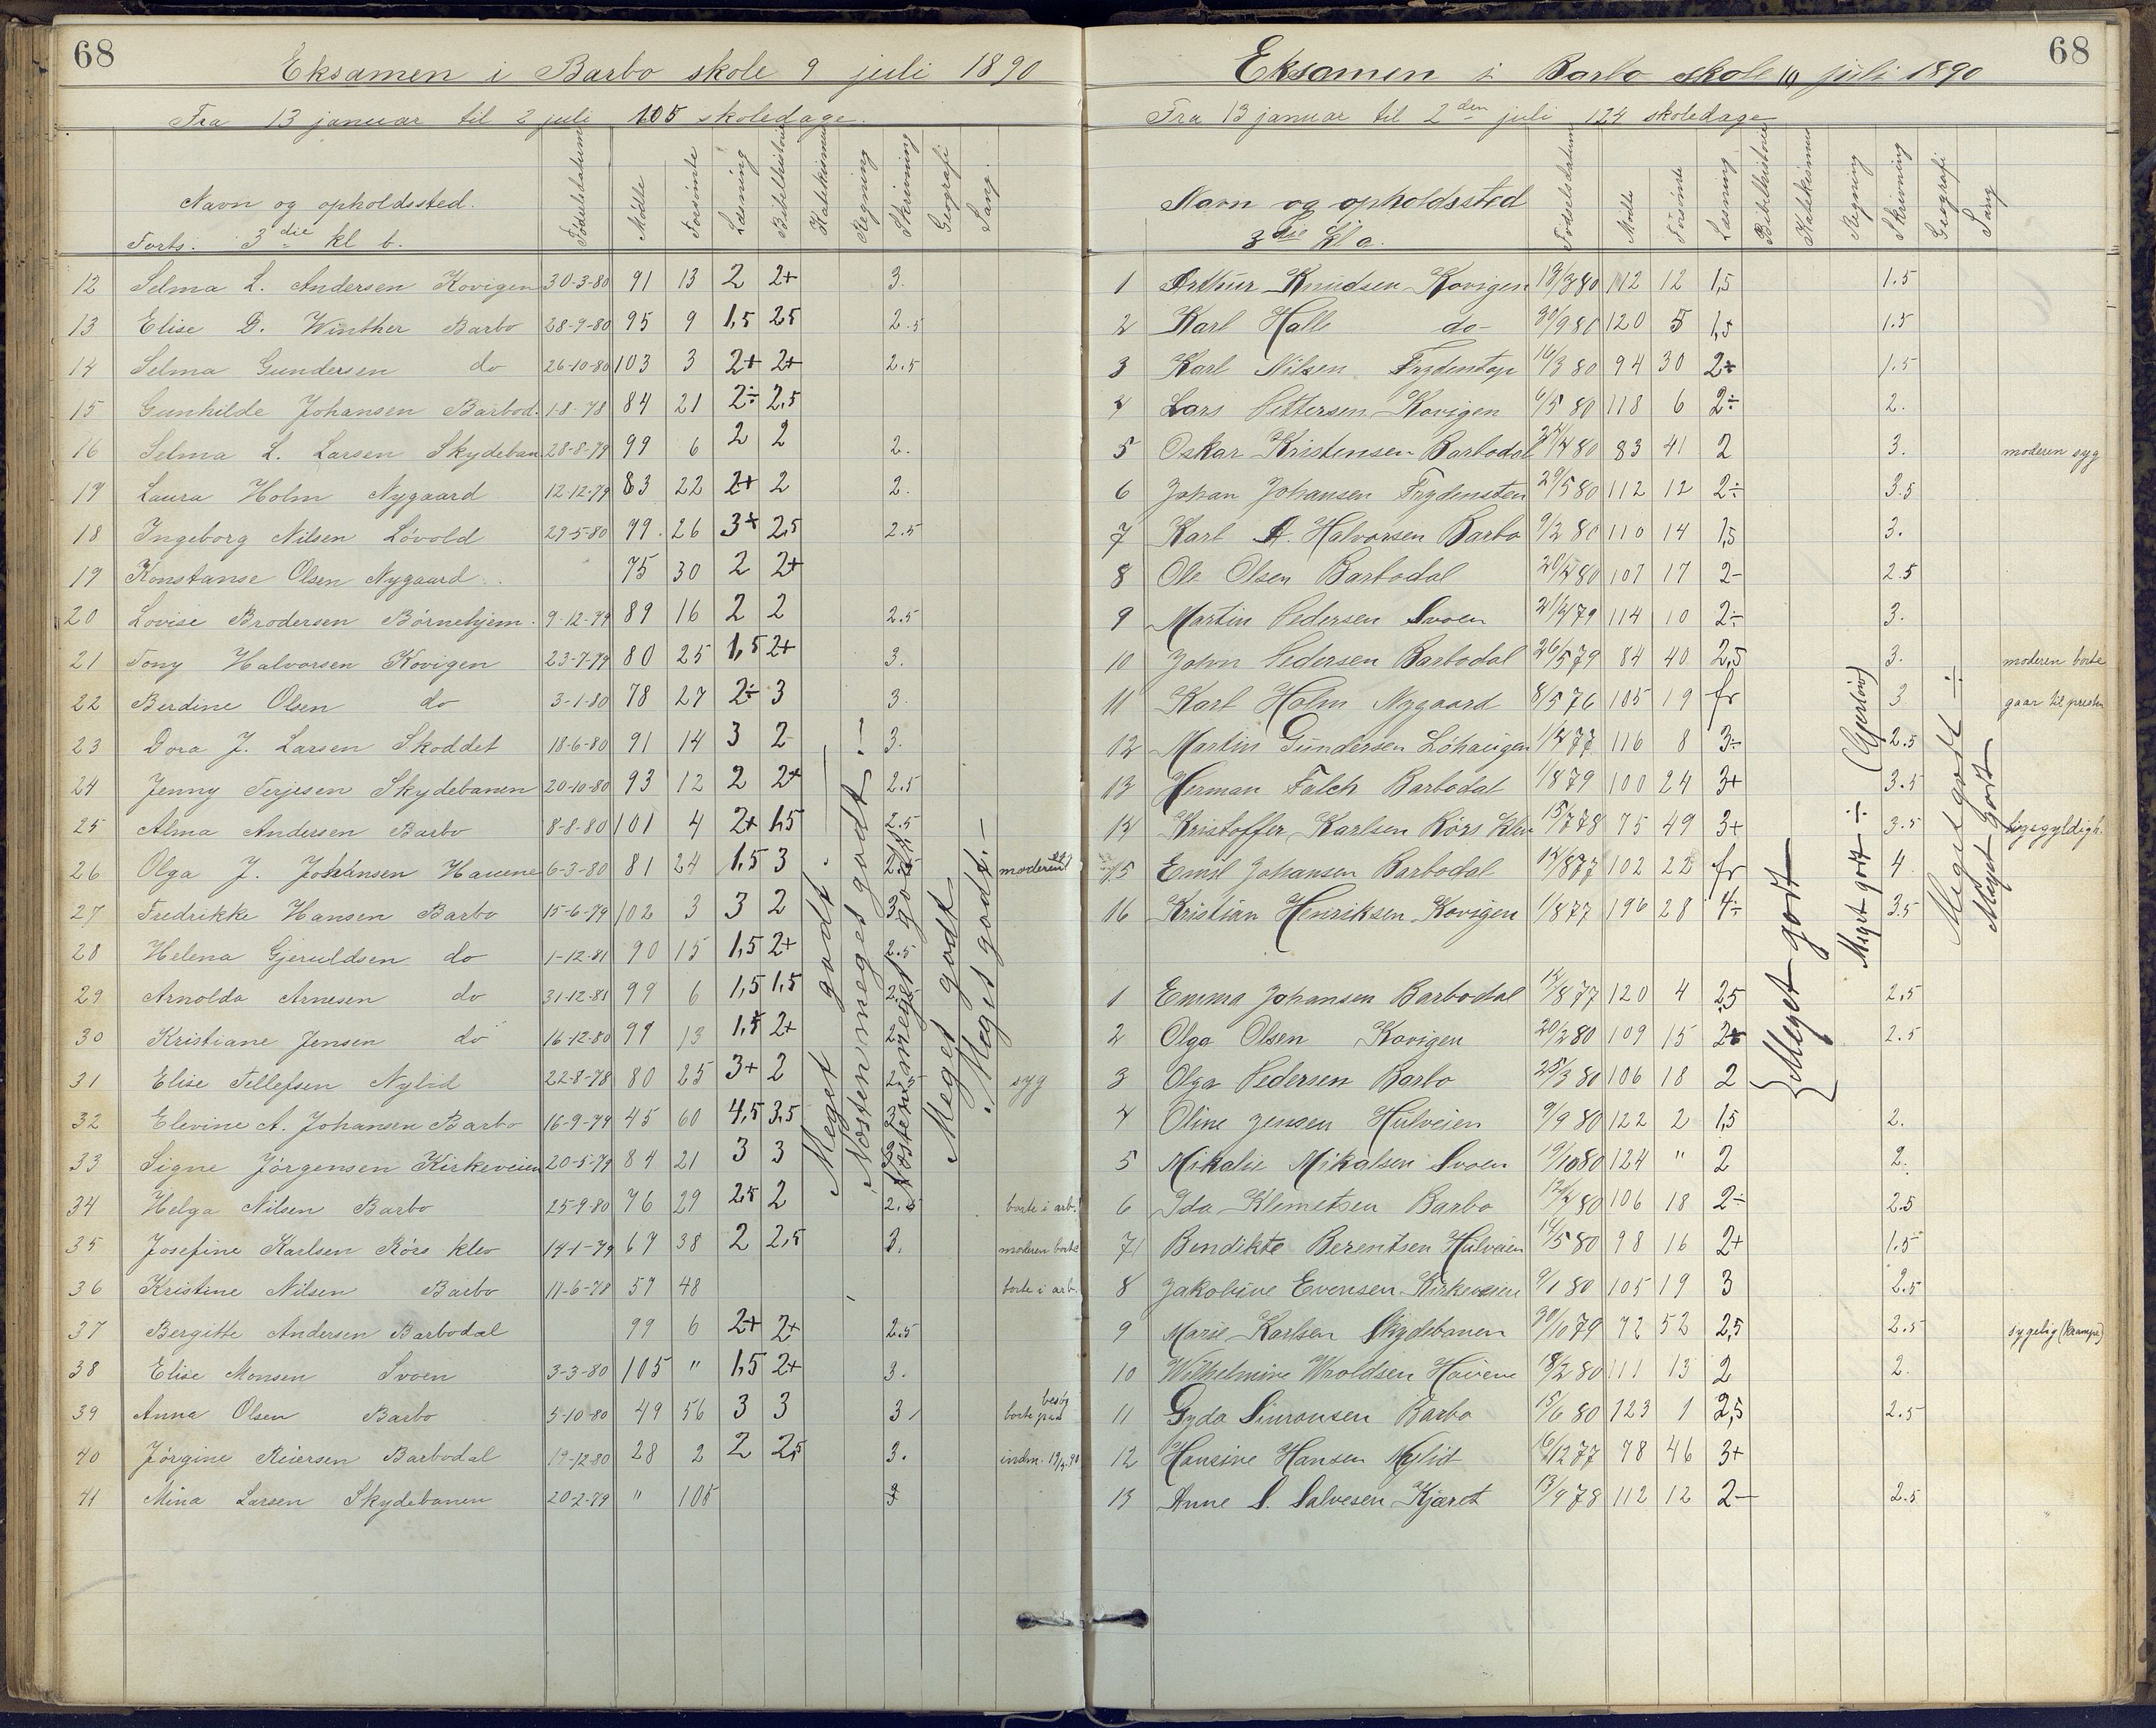 68
Eksamen i Barbo skole 9 juli 1890
Fra 13 januar til 2 juli 105 skoledage.
Navn og opholdssted. Födselsdatum Mödte Forsömte Læsning Bibelhistorie Katekismus Regning Skrivning Geografi Sang.
Forts. 3die kl b.
12 Selma L. Andersen Kovigen 30-3-80 91 13 2 2+ 3.
13 Elise D. Winther Barbo 28-9-80 95 9 1,5 25 2.5
14 Selma Gundersen do 26-10-80 103 3 2+ 2+ 2.5
15 Gunhilde Johansen Barbod. 1-8-78 84 21 2÷ 2,5
16 Selma L. Larsen Skydeban. 28-8-79 99 6 2 2 2.
17 Laura Holm Nygaard 12-12-79 83 22 2+ 2 2.
18 Ingeborg Nilsen Lövold 29-5-80 79. 26 3+ 2,5 2.5
19 Konstanse Olsen Nygaard 75 30 2 2+
20 Lovise Brodersen Börnehjem. 9-12-79 89 16 2 2 2.5
21 Tony Halvorsen Kovigen 23-7-79 80 25 1,5 2+ 3.
22 Berdine Olsen do 3-1-80 78 27 2÷ 3 3.
23 Dora J. Larsen Skoddet 18-6-80 91 14 3 2 3.
24 Jenny Terjesen Skydebanen 20-10-80 93 12 2 2+ 2.5
25 Alma Andersen Barbo 8-8-80 101 4 2+ 1,5 2.5
26 Olga J. Johansen Hauene 6-3-80 81 24 1,5 3 moderen
27 Fredrikke Hansen Barbo 15-6-79 102 3 3 2 3
28 Helena Gjeruldsen do 1-12-81 90 15 1,5 2+ 2.5
29 Arnolda Arnesen do 31-12-81 99 6 1,5 1,5
30 Kristiane Jensen do 16-12-80 99 13 1,5 2+
31 Elise Tellefsen Nylid 22-8-78 80 25 3+ 2 2.5 syg
32 Elevine A. Johansen Barbo 16-9-79 45 60 4,5 3,5
33 Signe Jörgensen Kirkeveien 20-5-79 84 21 3 3
34 Helga Nilsen Barbo 25-9-80 76 29 25 2 2.5 borte i arb.
35 Josefine Karlsen Rörs klev 14-1-79 67 38 2 2,5 3. moderen borte
36 Kristine Nilsen Barbo 11-6-78 57 48 borte i arb.
37 Bergitte Andersen Barbodal 99 6 2+ 2+ 2.5
38 Elise Monsen Svoen 3-3-80 105 " 1,5 2+ 3.
39 Anna Olsen Barbo 5-10-80 49 56 3 3 3 borte paa besög
40 Jörgine Reiersen Barbodal 19-12-80 28 2 2 2,5 3. indm. 19/5.90
41 Mina Larsen Skydebanen 20-2-79 " 105 3
Meget godt.
Næsten meget godt!
Næsten meget godt
Meget godt
Meget godt.
68
Eksamen i Barbo skole 10 juli 1890
Fra 13 januar til 2den juli 124 skoledage
Navn og opholdssted Födselsdatum Mödte Forsömte Læsning Bibelhistorie Katekismus Regning Skrivning Geografi Sang
3die kl a.
1 Arthur Knudsen Kovigen 13/3 80 112 12 1,5 1.5
2 Karl Halle do 30/9 80 120 5 1,5 1.5
3 Karl Nilsen 16/3 80 94 30 2+ 1.5
4 Lars Pettersen Kovigen 6/5 80 118 6 2÷ 2.
5 Oskar Kristensen Barbodal 80 83 41 2 3. moderen syg
6 Johan Johansen Frydensten 29/5 80 112 12 2÷ 3.5
7 Karl A. Halvorsen Barbo 9/2 80 110 14 1,5 3.
8 Ole Olsen Barbodal 20/2 80 107 17 2- 2.5
9 Martin Pedersen Svoen 79 114 10 2÷ 3.
10 John Pedersen Barbodal 26/5 79 84 40 2,5 3. moderen borte
11 Karl Holm Nygaard 8/5 76 105 19 fr 3 gaar til presten
12 Martin Gundersen Löhaugen 77 116 8 3÷ 2.5
13 Herman Falch Barbodal 1/8 79 100 24 3+ 3.5
14 Kristoffer Karlsen Rörs klev 15/7 78 75 49 3+ 3.5 ligegyldigh.
15 Emil Johansen Barbodal 14/8 77 102 22 fr 4
16 Kristian Henriksen Kovigen 1/8 77 196 28 4÷ 3.5
1 Emma Johansen Barbodal 14/8 77 120 4 2,5 2.5
2 Olga Olsen Kovigen 20/2 80 109 15 2+ 2.5
3 Olga Pedersen Barbo 25/3 80 106 18 2
4 Oline Jensen Hulveien 9/9 80 122 2 1,5 2.
5 Mikalie Mikalsen Svoen 19/10 80 124 " 2 2.
6 Ida Klemetsen Barbo 80 106 18 2÷ 2.5
7 Bendikte Berentsen Hulveien 14/5 80 98 16 2+ 1.5
8 Jakobine Evensen Kirkeveien 9/1 80 105 19 3 2.5
9 Marie Karlsen Skydebanen 30/10 79 72 52 2,5 2.5 sygelig (krampe)
10 Wilhelmine Wroldsen Havene 18/2 80 111 13 2 2.
11 Gyda Simonsen Barbo 15/6 80 123 1 2,5 2.5
12 Hansine Hansen Nylid 16/12 77 78 46 3+
13 Anne S. Salvesen Kjæret 13/9 78 112 12 2- 2.5
Meget godt
Meget godt ÷ (Gjerlöw)
Meget godt ÷
Meget godt